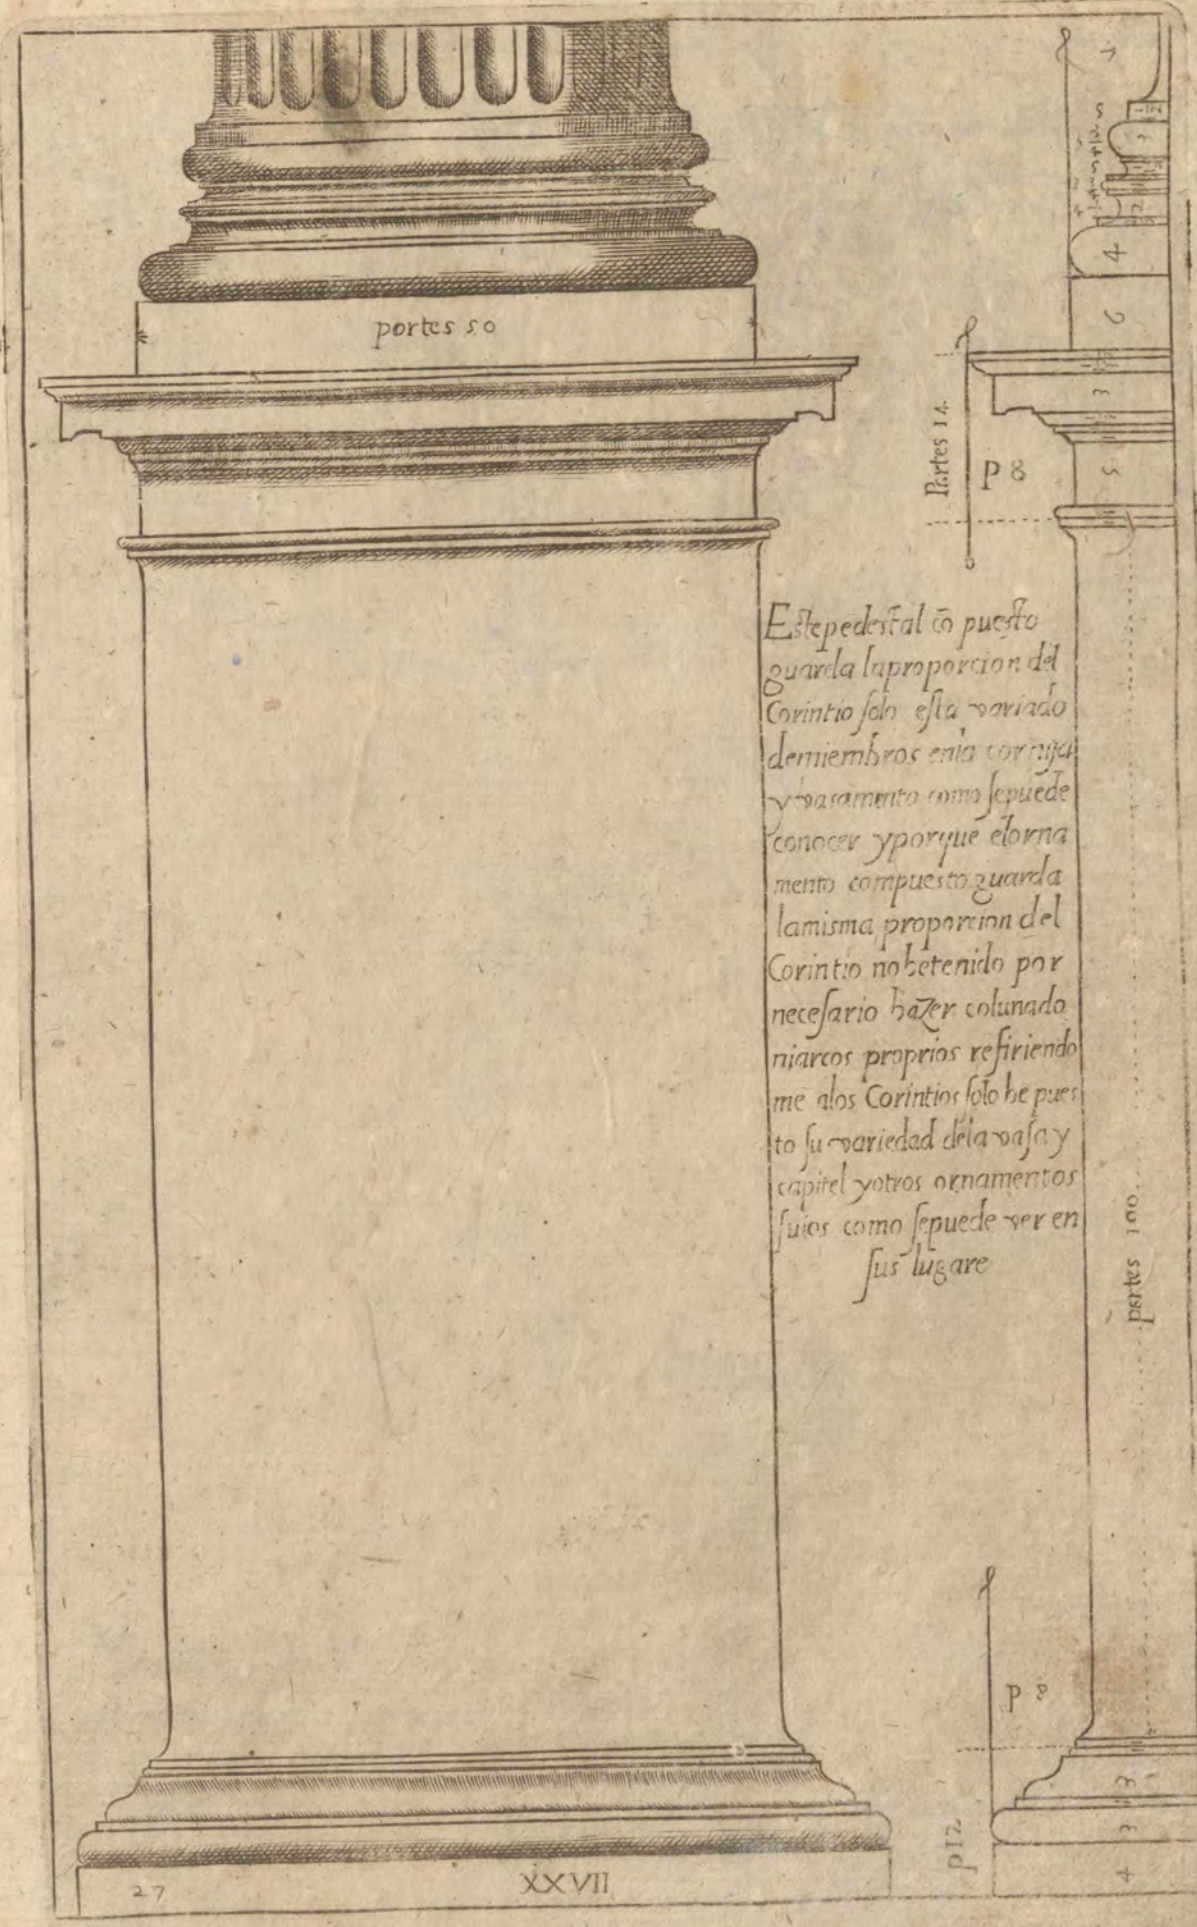 portes 50
Partes 14.
P 8
Este pedestal cō puesto
guarda laproporcion del
Corintio ſolo eſta variado
demiembros enla cornija
y vasamento como ſepuede
conocer yporque elorna
mento compuesto guarda
lamisma proporcion del
Corintio nohetenido por
neceſario hazer colunado
niarcos proprios refiriendo
me alos Corintios ſolo he pues
to ſu variedad dela vaſa y
capitel yotros ornamentos
ſuios como ſepuede ver en
ſus lugare
partes 100
P 8
p 12
7
3
2
4
6
3
5
3
3
4
XXVII
27